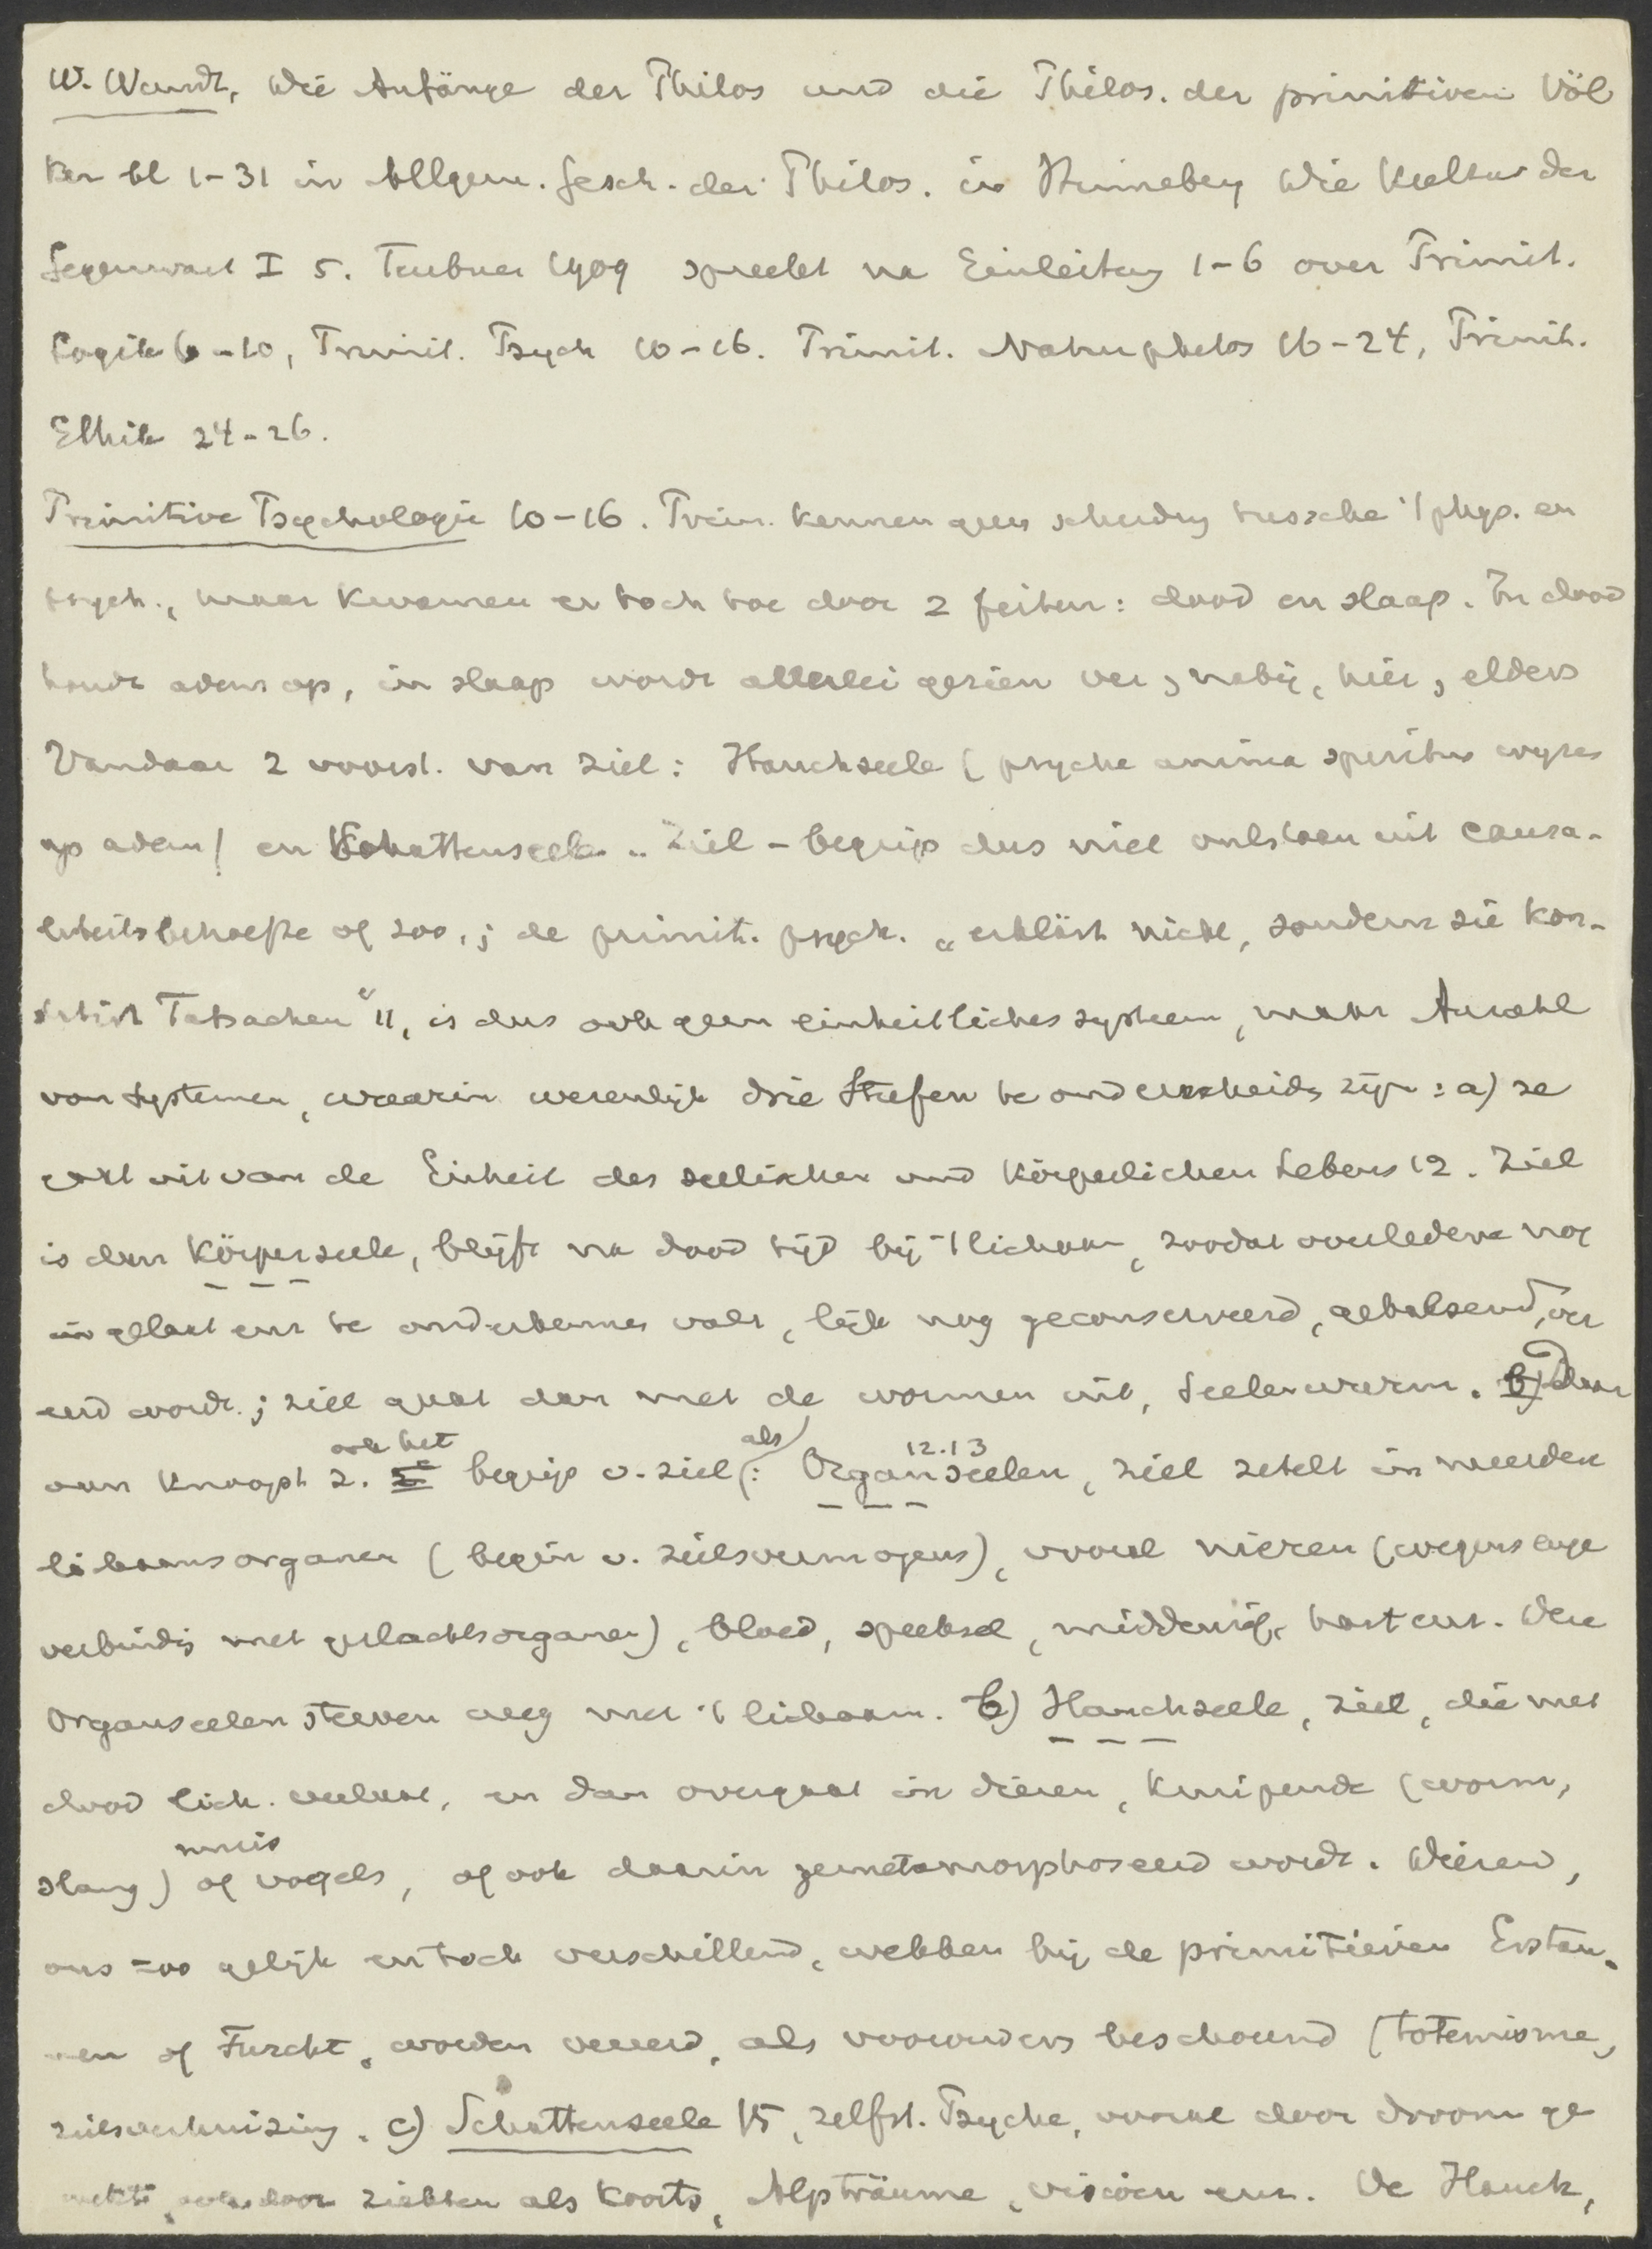 W. Wundt, Die Anfänge der Philos und die Philos. der primitiven Völ
ker bl 1-31 in Allgem. Gesch. der Philos. in Hinneberg Die Kultur der
Gegenwart I 5. Teubner 1909 spreekt na Einleitung 1-6 over Primit.
Logik 6-10, Primit. Psych 10-16. Primit. Naturphilos 16-24, Primit.
Ethik 24-26.
Primitive Psychologie 10-16. Prim. kennen geen scheiding tussche 't phys. en
psych., maar kwamen er toch toe door 2 feiten: dood en slaap. In dood
houdt adem op, in slaap wordt allerlei gezien ver, nabij, hier, elders
Vandaar 2 voorst. van ziel: Hauchseele (psyche anima spiritus wyzes
op adem) en Schattenseele. Ziel-begrip dus niet ontstaan uit causa-
liteitsbehoefte of zoo,; de primit. psych. "erklärt nicht, sondern sie kon-
statirt Tatsachen" 11, is dus ook geen einheitliches system, maar Anzahl
van Systemen, waarin wezenlijk drie Stufen te onderscheiden zijn: a) ze
gaat uit van de Einheit des seelischen und körperlichen Lebens 12. Ziel
is dan Körperseele, blijft na dood tijd bij 't lichaam, zoodat overledene nog
in gelaat enz te onderkennen valt, lijk nog geconserveerd, gebalsemd, ver
eerd wordt; ziel gaat dan met de wormen uit, Seelenwurm. b) daar
aan knoopt z. ook het begrip v. ziel als: Organseelen 12.13, ziel zetelt in meerdere
lichaamsorganen (begin v. zielsvermogens), vooral nieren (wegens enge
verbinding met geslachtsorganen), bloed, speeksel, middenrif, hart enz. Deze
Organseelen sterven weg met 't lichaam. b) Hauchseele, ziel, die met
dood lich. verlaat, en dan overgaat in dieren, kruipende (worm,
slang) muis of vogels, of ook daarin gemetamorphoseerd wordt. Dieren,
ons zoo gelijk en toch verschillend, wekken bij de primitieven Erstau-
nen of Furcht, worden vereerd, als voorouders beschouwd (totemisme,
zielsverhuizing. c) Schattenseele 15, zelfst. Psyche, vooral door droom ge
wekt, ook door ziekten als koorts, Alpträume, visioen enz. De Hauch,